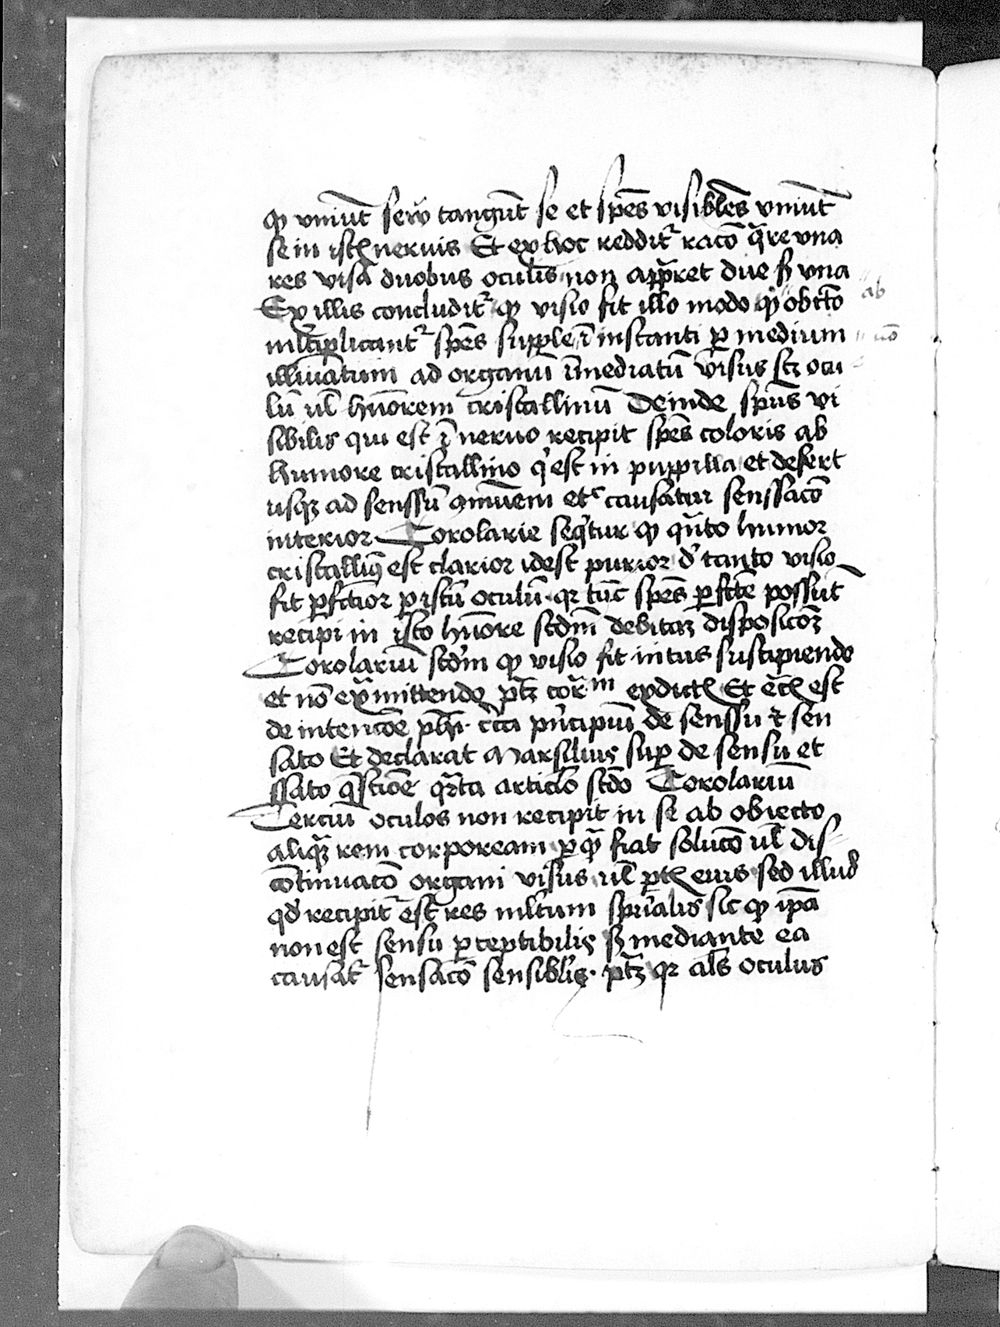 qꝫ vniūt seu tangūt se et spēs visibiles vniūt
se in istis neruis Et ex hoc reddit᷒ racō q̄re vna
res visa duobus oculis non apparet due sꝫ vna
Ex illis concludit᷒ qꝫ visio fit illo modo qꝫ obiecto
mltiplicant᷒ spēs supple ī instanti per medium
illuminatum ad organū īmediatū visus scꝫ ocu
lū vel hūorem cristallinū Deinde spūs vi
sibilis qui est ī neruo recipit spēs coloris ab
humore cristallino qͥ est in puppilla et defert
usqꝫ ad senssū ꝯmunem etc causatur senssacō
interior Corolarie seqͥtur qꝫ qͣnto humor
cristallinꝰ est clarior idest purior de tanto visio
fit perfectior per istū oculū qꝛ tūc spēs perfecte possūt
recipi in isto hūore secdm debitaꝫ disposicoꝫ
Corolariū secdm qꝫ visio fit intus suscipiendo
et nō extramittendo ptꝫ cor.m ex dictis Et etiā est
de intencōe phi circa pͥncipiū de senssu et sen
sato Et declarat Marsilius super de sensu et
ssato questiōe qͣrta articlo secdo Corolariū
Terciū oculos non recipit in se ab obiecto
aliquā rem corpoream per quā fiat solucō vel dis
cōtinuacō organi visus vel partis eius sed illud
qd recipit est res mltum spūalis sic qꝫ ipa
non est sensu perceptibilis sꝫ mediante ea
causat᷒ sensacō sensibilis. ptꝫ qꝛ als oculus
ab